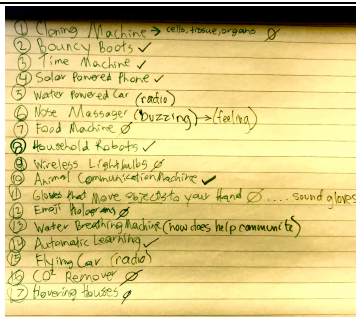 ① Cloning Machine → cells, tissue, organs ∅
② Bouncy Boots ✓
③ Time Machine ✓
④ Solar Powered Phone ✓
⑤ Water Powered Car (radio)
⑥ Nose Massager (buzzing) → (feeling)
⑦ Food Machine ∅
⑧ Household Robots ✓
⑨ Wireless Lightbulbs ∅
⑩ Animal Communication Machine ✓
⑪ Gloves that move objects to your Hand ∅ .... sound gloves
⑫ Emoji Holograms ∅
⑬ Water Breathing Machine (how does help communite)
⑭ Automatic Learning ✓
⑮ Flying Car (radio)
⑯ CO² Remover ∅
⑰ Hovering Houses ∅